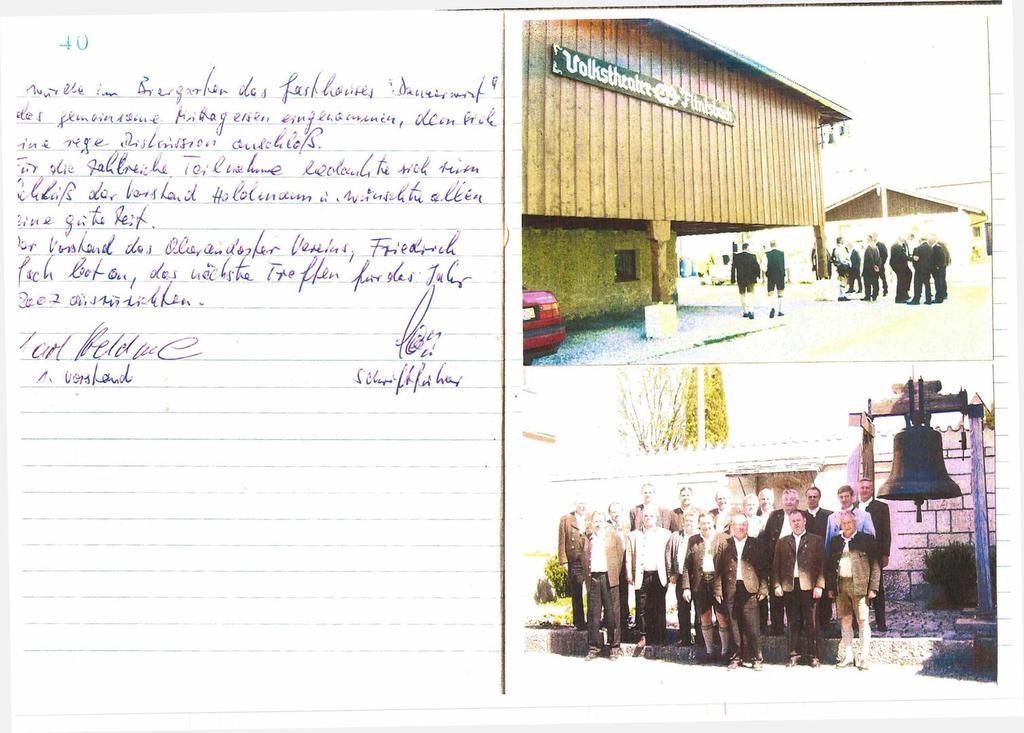 40
wurde im Biergarten des Gasthauses "Dannerwirt"
das gemeinsame Mittagessen eingenommen, dem sich
ine rege Diskussion anschloß.
ür die zahlreiche Teilnahme bedankte sich zum
chluß der Vorstand Heldmann u. wünschte allen
eine gute Zeit.
er Vorstand des Vereins, Friedrich
bot an, das nächste Treffen für das Jahr
2007 auszurichten.
1. Vorstand Schriftführer
Volkstheater Flintsbach